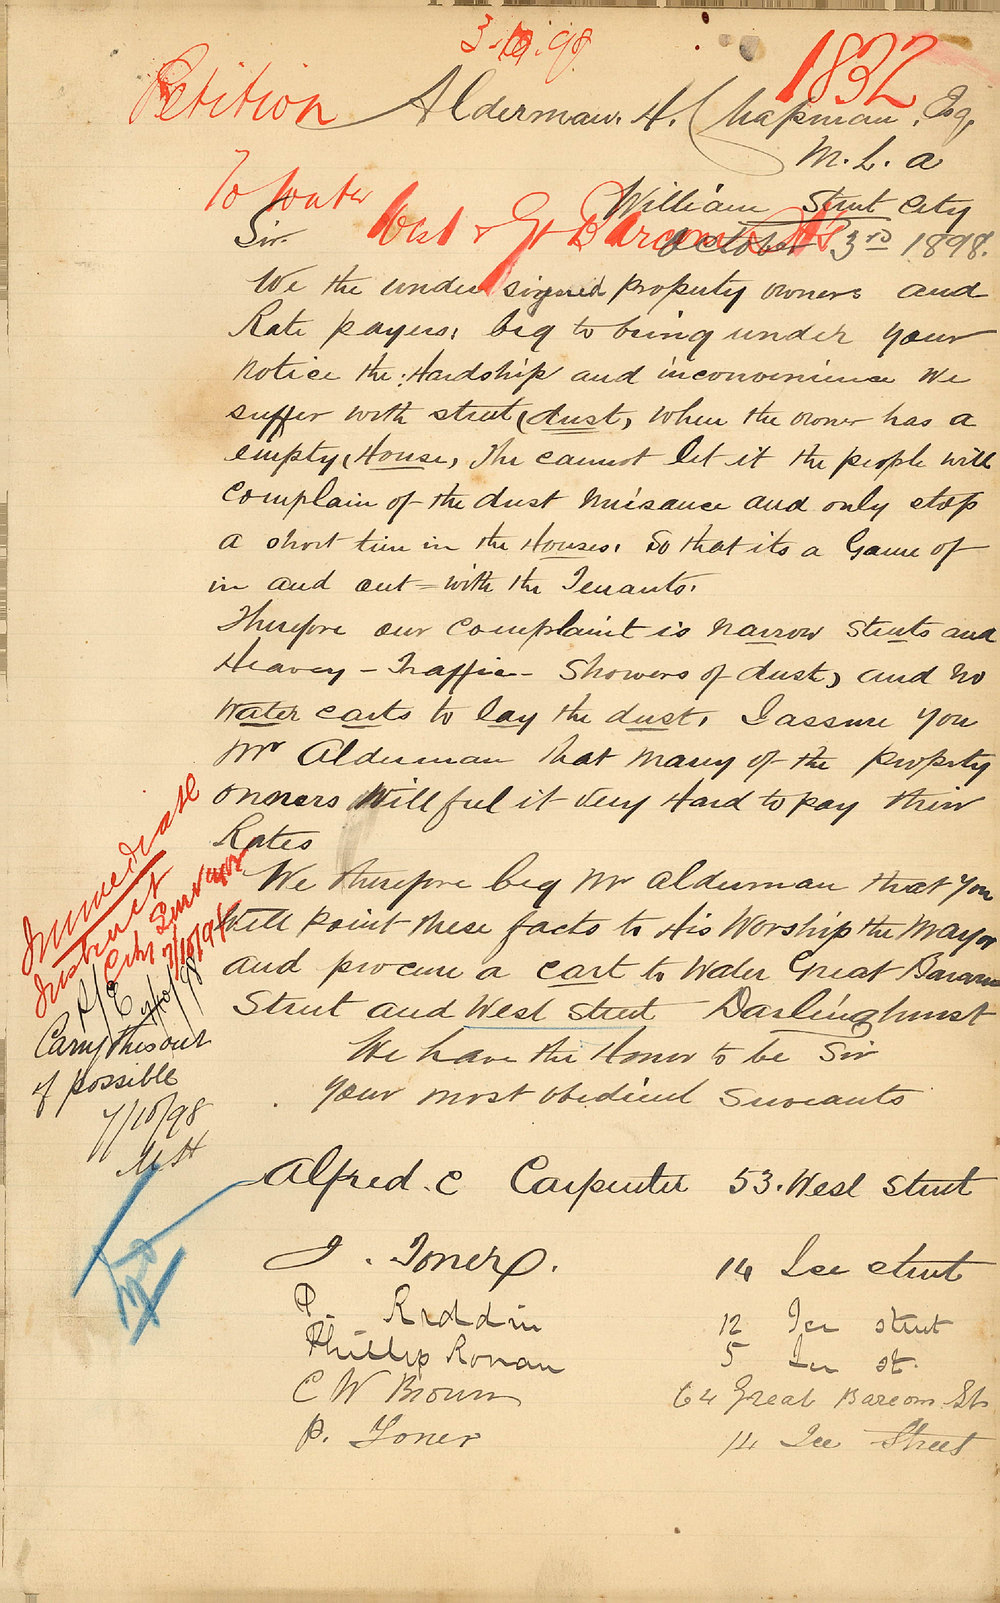 3.10.98
1832
Petition
Alderman. H. Chapman. Esq,
M. L. a
To Water
William Street City
West & Gt Barcom Sts
Sir.
October 3rd 1898.
We the under signed property owners and
Rate payers, beg to bring under your
notice the Hardship and inconvenience we
suffer with street dust, when the owner has a
empty House, He cannot let it the people will
complain of the dust nuisance and only stop
a short time in the Houses. So that its a Game of
in and out = with the Tenants.
Therefore our complaint is narrow streets and
Heavey - Traffic - Showers of dust, and no
water carts to lay the dust. I assure you
Mr Alderman that many of the property
owners Will feel it very Hard to pay their
Rates
We therefore beg Mr alderman that you
will point these facts to His Worship the Mayor
and procure a cart to Water Great Barcom
Street and West street Darlinghurst
We have the Honor to be Sir
Your most obedient Servants
Immediate
Instruct
City Surveyor
7/10/98
Carry this out
if possible
7/10/98
Alfred. C Carpenter 53. West street
J. Toner. 14 Ice street
P. Riddin 12 Ice street
Phillip Ronan 5 Ice st.
C W Brown 64 Great Barcom St
P. Toner 14 Ice Street